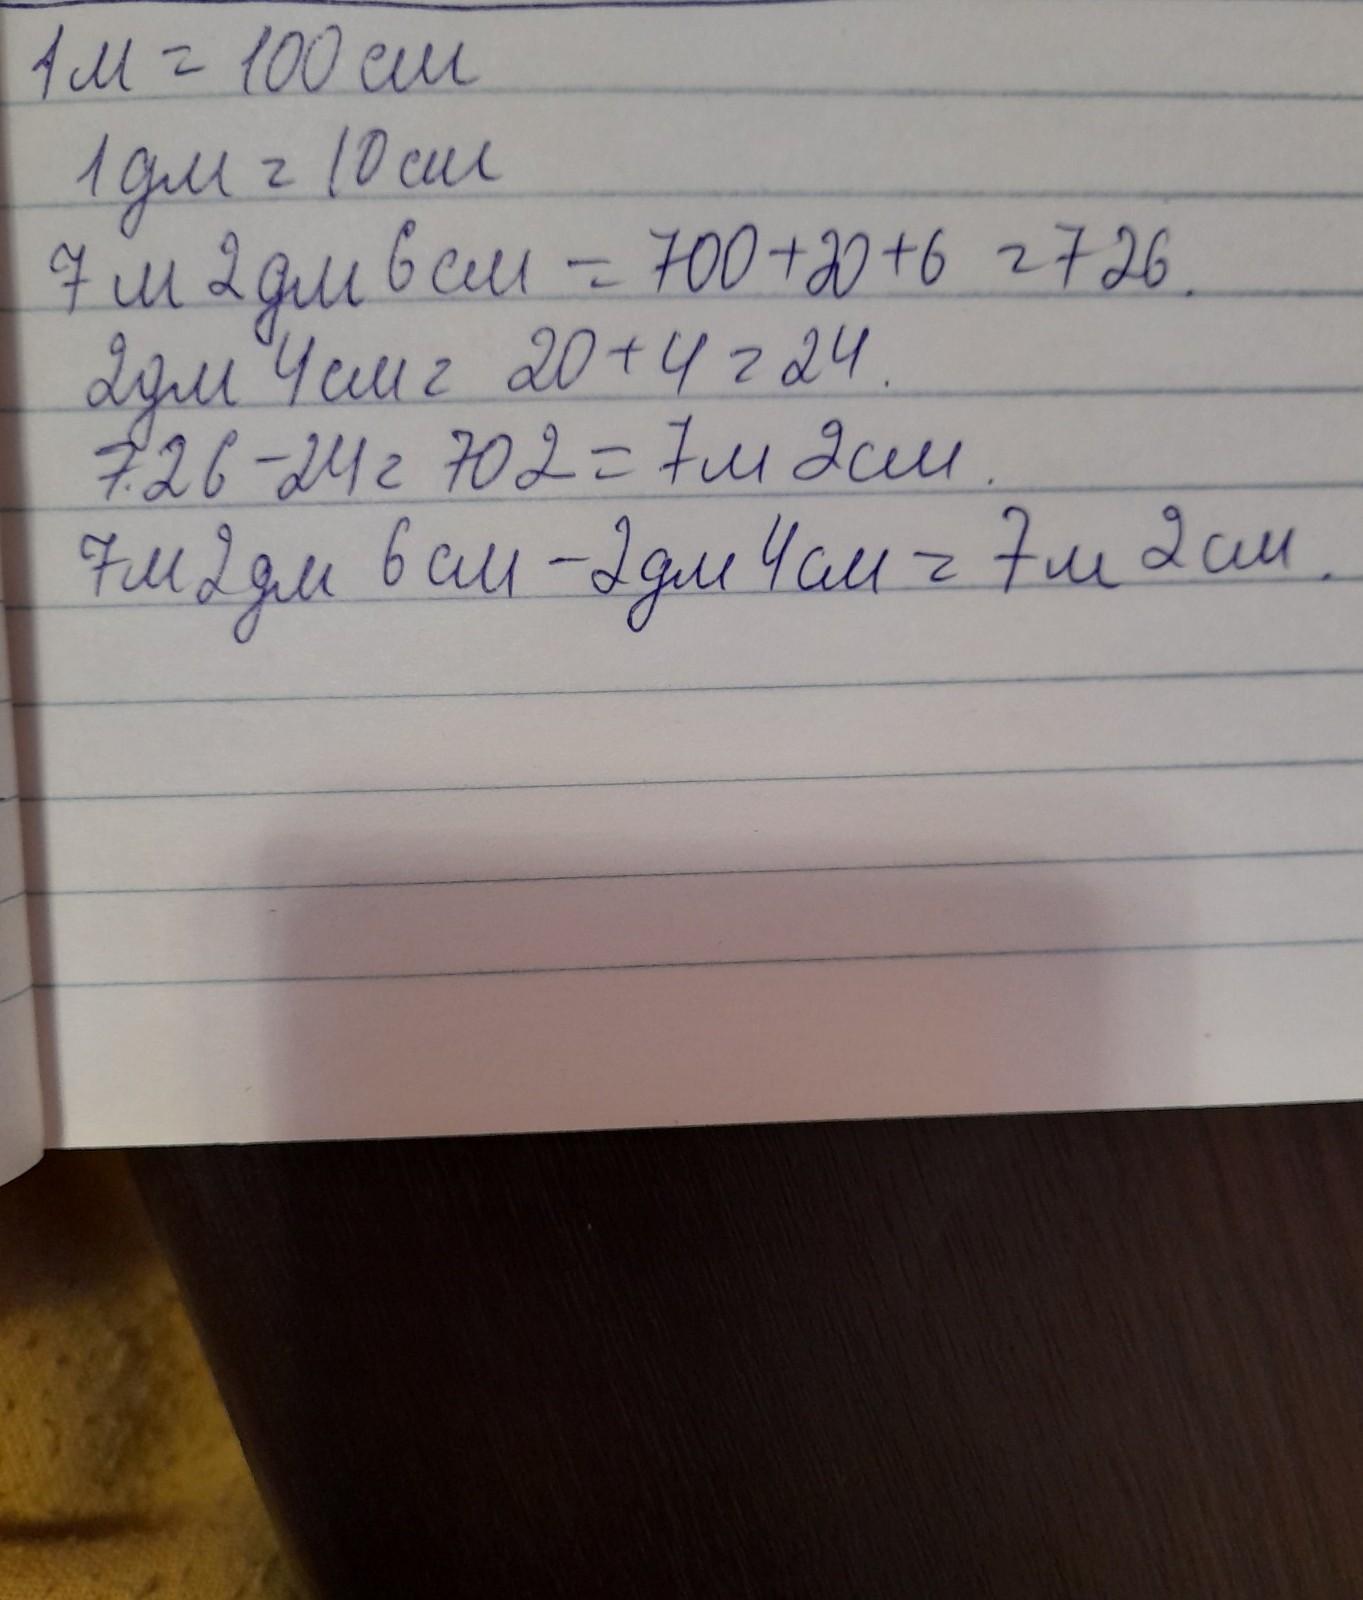 1м = 100 см
1дм = 10 см
7м 2дм 6 см = 700+20+6 = 726.
2дм 4 см = 20+4 = 24.
726-24 = 702 = 7м 2см.
7м 2дм 6 см - 2дм 4 см = 7м 2 см.